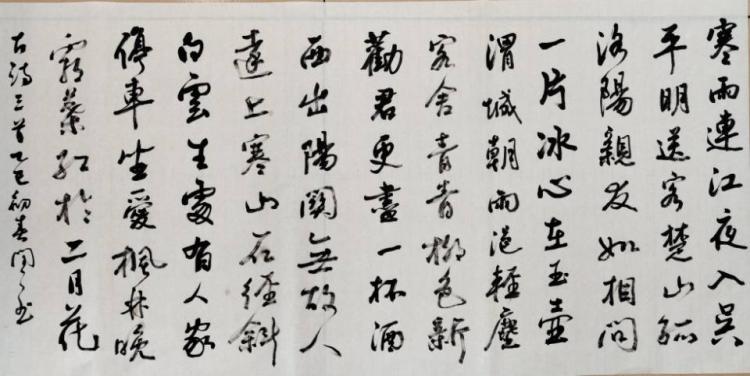 寒雨連江夜入吳
平明送客楚山孤
洛陽親友如相問
一片冰心在玉壺
渭城朝雨浥輕塵
客舍青青柳色新
勸君更盡一杯酒
西出陽關無故人
遠上寒山石徑斜
白雲生處有人家
停車坐愛楓林晚
霜葉紅於二月花
古詩三首乙巳初春